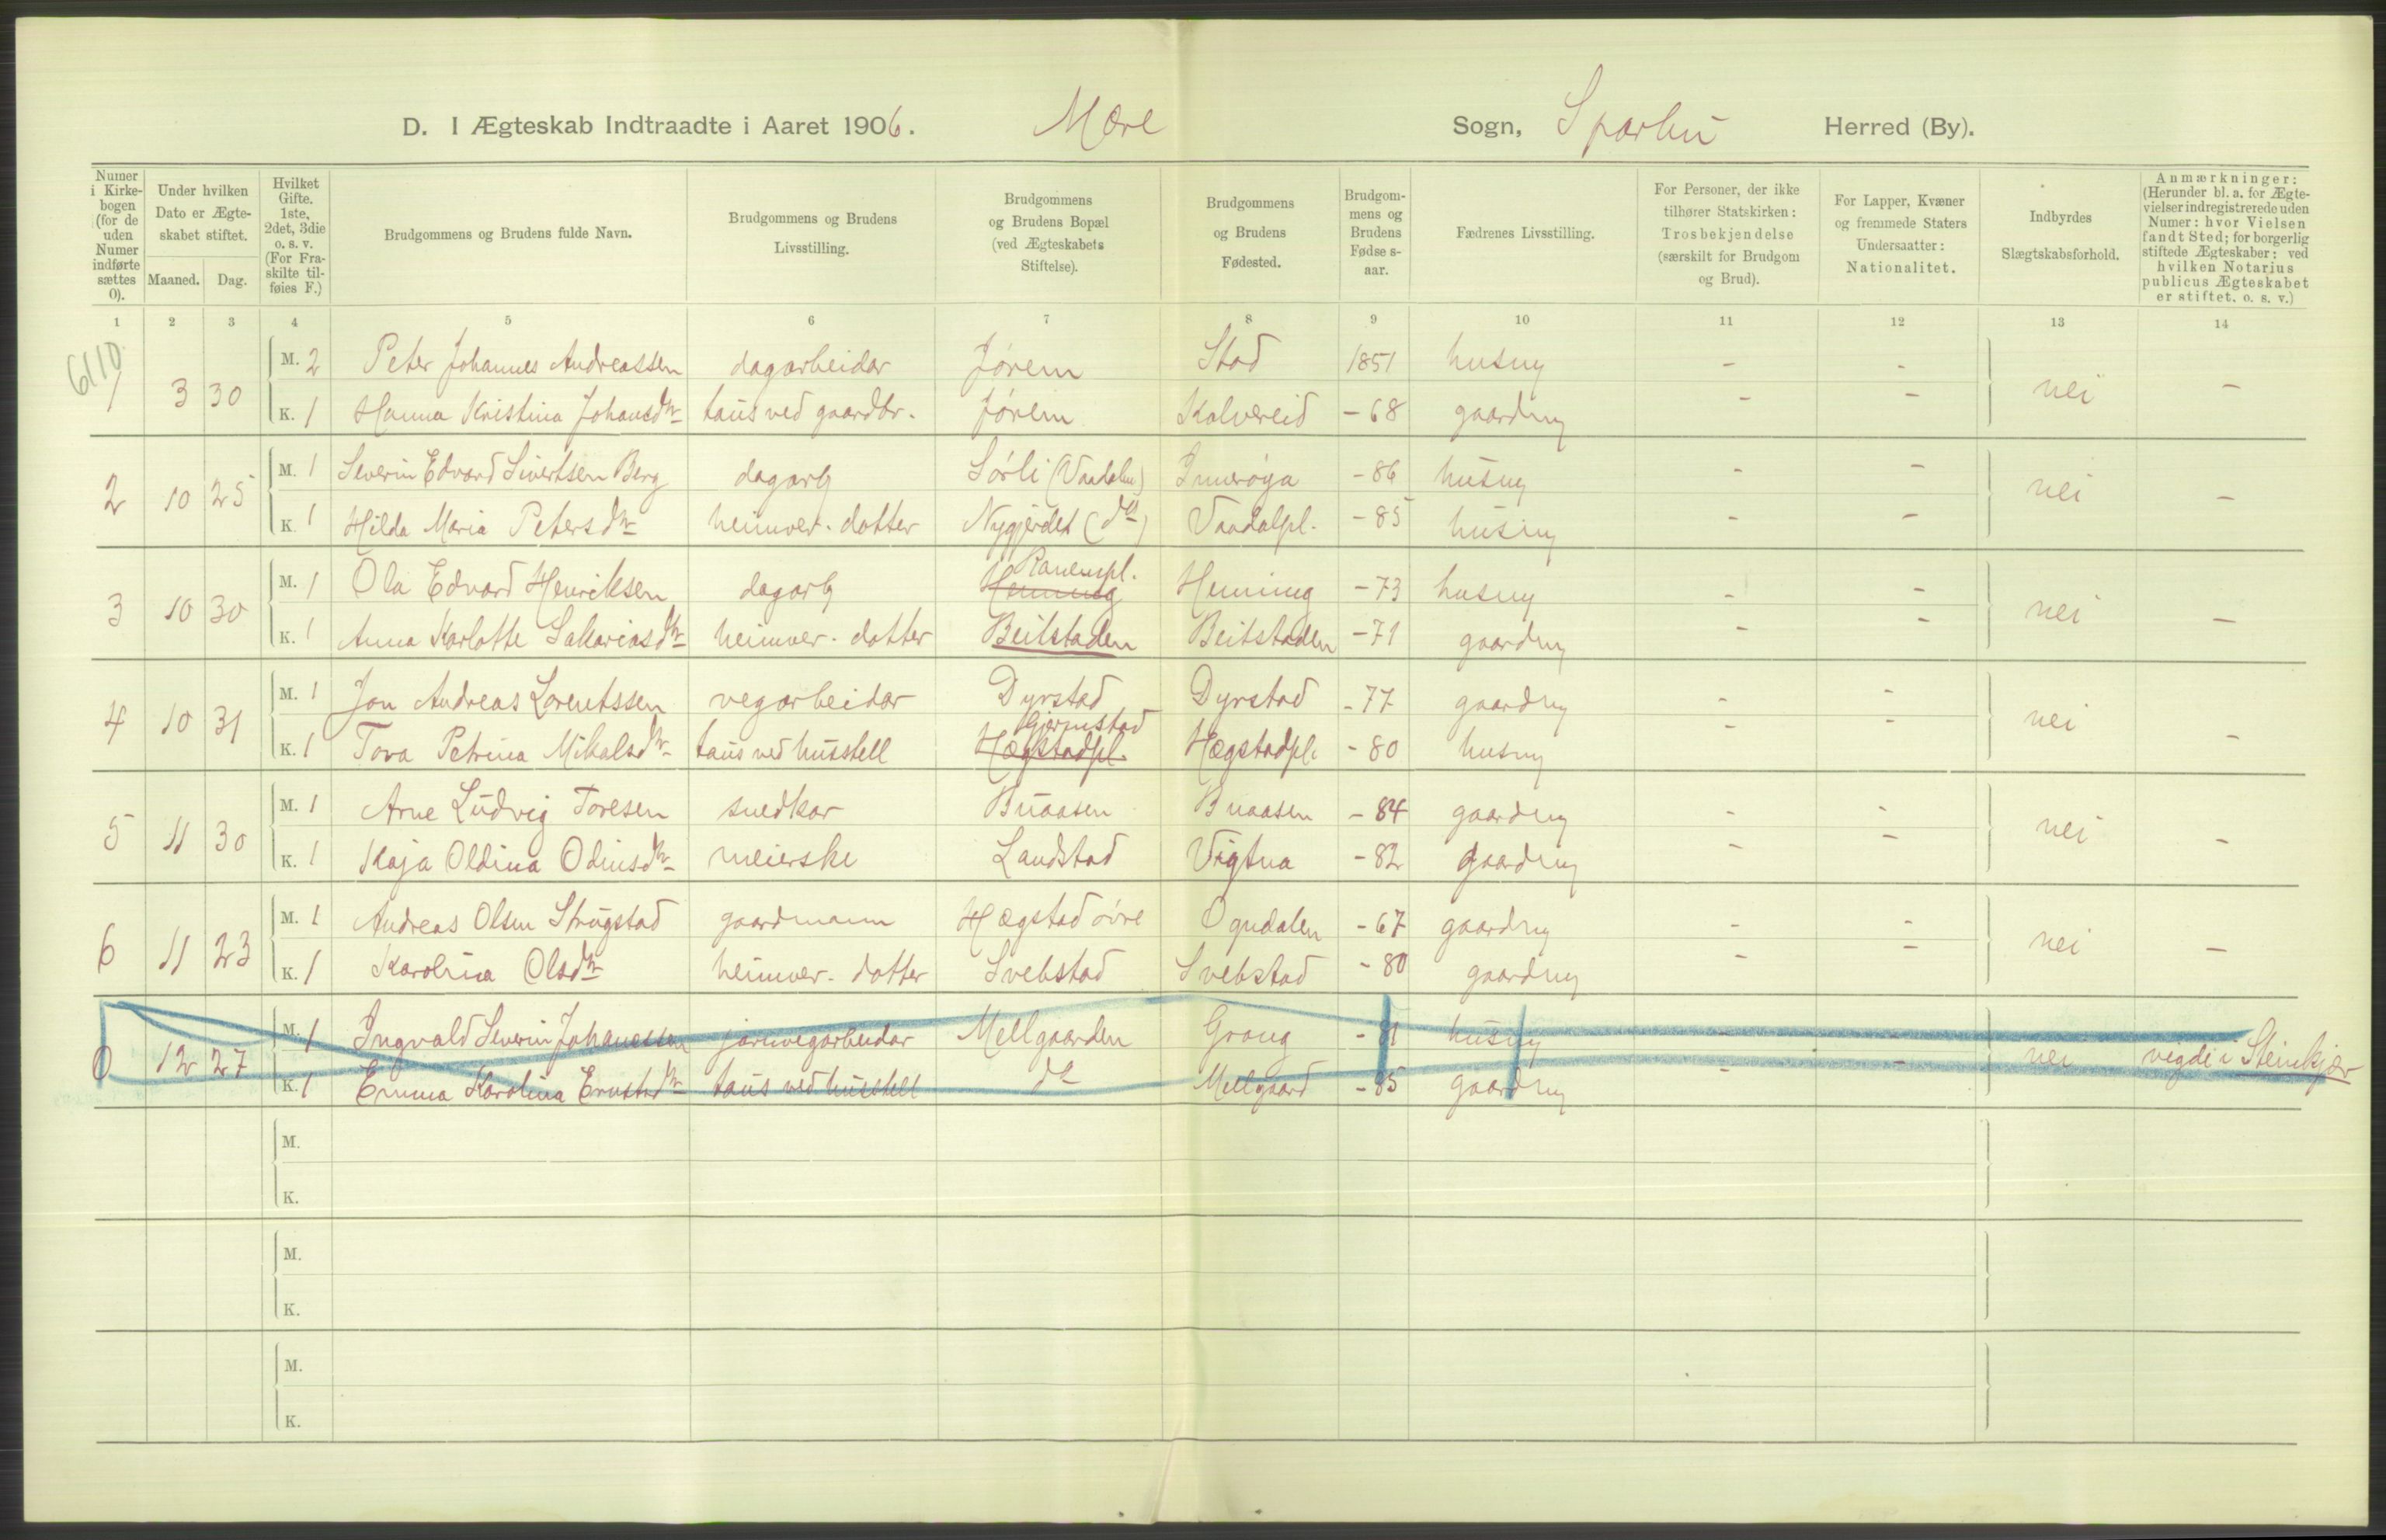 D. I Ægteskab Indtraadte i Aaret 1906. Mære Sogn, Sparbu Herred (By).
Numer i Kirkebogen (for de uden Numer indførte sættes 0).
Under hvilken Dato er Ægteskabet stiftet.
Maaned. Dag.
Hvilket Gifte. 1ste, 2det, 3die o. s. v. (For Fraskilte tilføies F.)
Brudgommens og Brudens fulde Navn.
Brudgommens og Brudens Livsstilling.
Brudgommens og Brudens Bopæl (ved Ægteskabets Stiftelse).
Brudgommens og Brudens Fødested.
Brudgommens og Brudens Fødselsaar.
Fædrenes Livsstilling.
For Personer, der ikke tilhører Statskirken: Trosbekjendelse (særskilt for Brudgom og Brud).
For Lapper, Kvæner og fremmede Staters Undersaatter: Nationalitet.
Indbyrdes Slægtskabsforhold.
Anmærkninger: (Herunder bl. a. for Ægtevielser indregistrerede uden Numer: hvor Vielsen fandt Sted; for borgerlig stiftede Ægteskaber: ved hvilken Notarius publicus Ægteskabet er stiftet. o. s. v.)
1 2 3 4 5 6 7 8 9 10 11 12 13 14
6110
1 3 30 M. 2 Peter Johannes Andreassen dagarbeidar Jørem Stod 1851 husmy - - nei -
K. 1 Hanna Kristina Johansdtr taus ved gaardbr. Jørem Kalvereid - 68 gaardmy - -
2 10 25 M. 1 Severin Edvard Sivertsen Berg dagarb Sørli (Vardalen) Inderøya - 86 husmy - - nei -
K. 1 Hilda Maria Petersdtr heimver. dotter Nygjerdet (do) Vaadalpl. - 85 husmy - -
3 10 30 M. 1 Ola Edvard Henriksen dagarb Henning Ranempl. Henning - 73 husmy - - nei -
K. 1 Anna Karlotte Sakariasdtr heimver. dotter Beitstaden Beitstaden - 71 gaardmy - -
4 10 31 M. 1 Jon Andreas Lorentssen vegarbeidar Dyrstad Dyrstad - 77 gaardmy - - nei -
K. 1 Tova Petrina Mikalsdtr taus ved husstell Hægstadpl. Gjermstad Hægstadpl. - 80 husmy - -
5 11 30 M. 1 Arne Ludvig Toresen snedkar Buaasen Buaasen - 84 gaardmy - - nei -
K. 1 Kaja Oldina Odinsdtr meierske Landstad Vigtna - 82 gaardmy - -
6 11 23 M. 1 Andreas Olsen Strugstad gaardmann Hægstad øvre Ogndalen - 67 gaardmy - - nei -
K. 1 Karolina Olsdtr heimver. dotter Svebstad Svebstad - 80 gaardmy - -
0 12 27 M. 1 Ingvald Severin Johanessen jarnvegarbeidar Mellgaarden Grong - 81 husmy - - nei vigde i Steinkjær
K. 1 Emma Karolina Ernstsdtr taus ved husstell do Mellgaard - 85 gaardmy - -
M.
K.
M.
K.
M.
K.